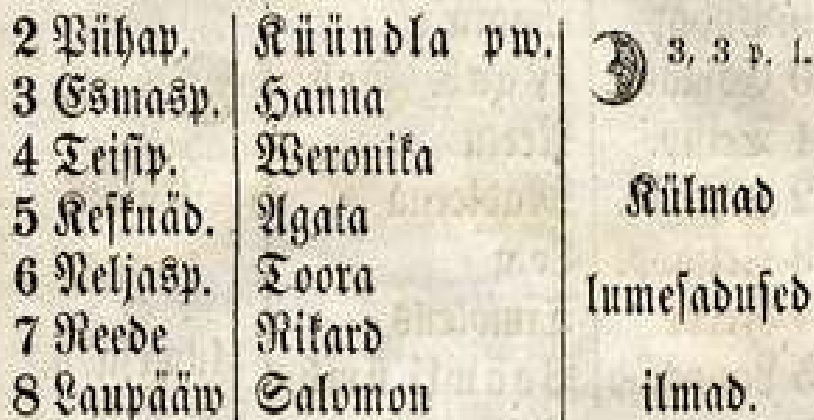 2 Pühap. Küündla pw. 3, 3 p. l.
3 Esmasp. Hanna
4 Teisip. Weronika Külmad
5 Kesknäd. Agata
6 Neljasp. Toora lumesadused
7 Reede Rikard
8 Laupääw Salomon ilmad.